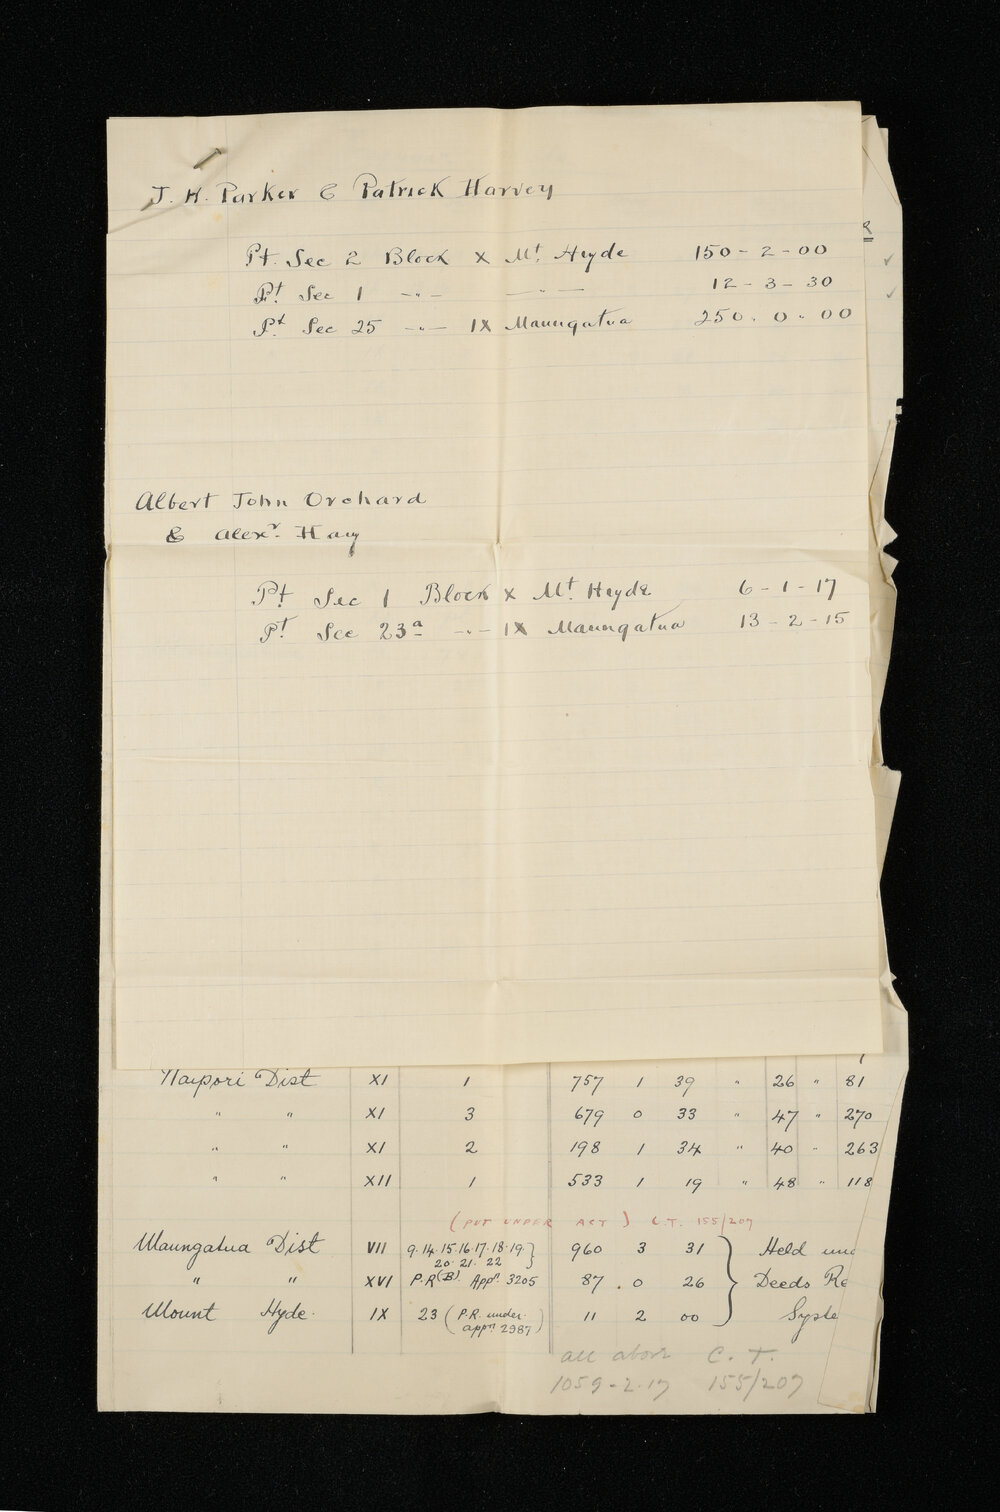 J. H. Parker & Patrick Harvey
Pt. Sec 2 Block X Mt. Hyde 150 - 2 - 00
Pt. Sec 1 -"- -"- 12 - 3 - 30
Pt. Sec 25 -"- IX Maungatua 250 . 0 . 00
Albert John Orchard
& Alexr. Hay
Pt. Sec 1 Block X Mt. Hyde 6 - 1 - 17
Pt. Sec 23a -"- IX Maungatua 13 - 2 - 15
Waipori Dist XI 1 757 1 39 " 26 " 81
" " XI 3 679 0 33 " 47 " 270
" " XI 2 198 1 34 " 40 " 263
" " XII 1 533 1 19 " 48 " 118
(PUT UNDER ACT) C.T. 155/207
Maungatua Dist VII 9.14.15.16.17.18.19. 960 3 31 Held und
20. 21. 22
" " XVI P.R.(B). Appn. 3205 87 . 0 26 Deeds Re
Mount Hyde. IX 23 (P.R. under 11 2 00 Syste
appn. 2987)
all above C. T.
1059 - 2. 17 155/207